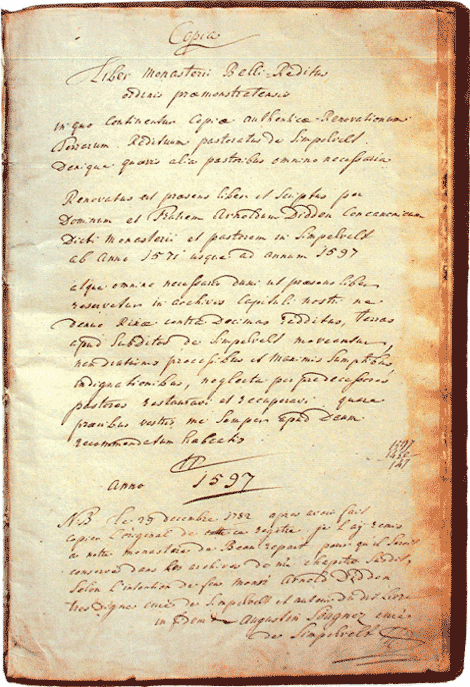 Copia
Liber Monasterii Belli-Reditus
ordinis præmonstratensis
in quo continentur Copiæ authenticæ Renovationum
Terrarum Redituum pastoratus de Simpelveld
Denique quævis alia pastoribus omnino necessaria
Renovatus est præsens liber et Scriptus per
Dominum et fratrem Arnoldum Didden Concanonicum
Dicti Monasterii et pastorem in Simpelveld
ab Anno 1571 usque ad annum 1597
atque omnino necessarium ut præsens liber
reservetur in Archivis Capituli nostri ne
denuo Rixæ contra Decimas redditus, terras
apud Subditos de Simpelveld moveantur,
processibus et Maximis Sumptibus,
indignationibus, neglecta per predecessores
pastores restauravi et recuperavi quare
præcibus vestris me Semper apud Deum
recommendatum habeatis
Anno 1597
NB le 29 decembre 1782 apres avoir fait
copier L'original de cette registre je L'aj remis
a notre monastere de Beau repart pour qu'il Soit
conservé dans les archives de Chapitre Susdit,
Selon L'intention de feu Monsr Arnold Didden
tres digne curé de Simpelveld et auteur du dit Livre
Augustin Lougnez curé
de Simpelveld